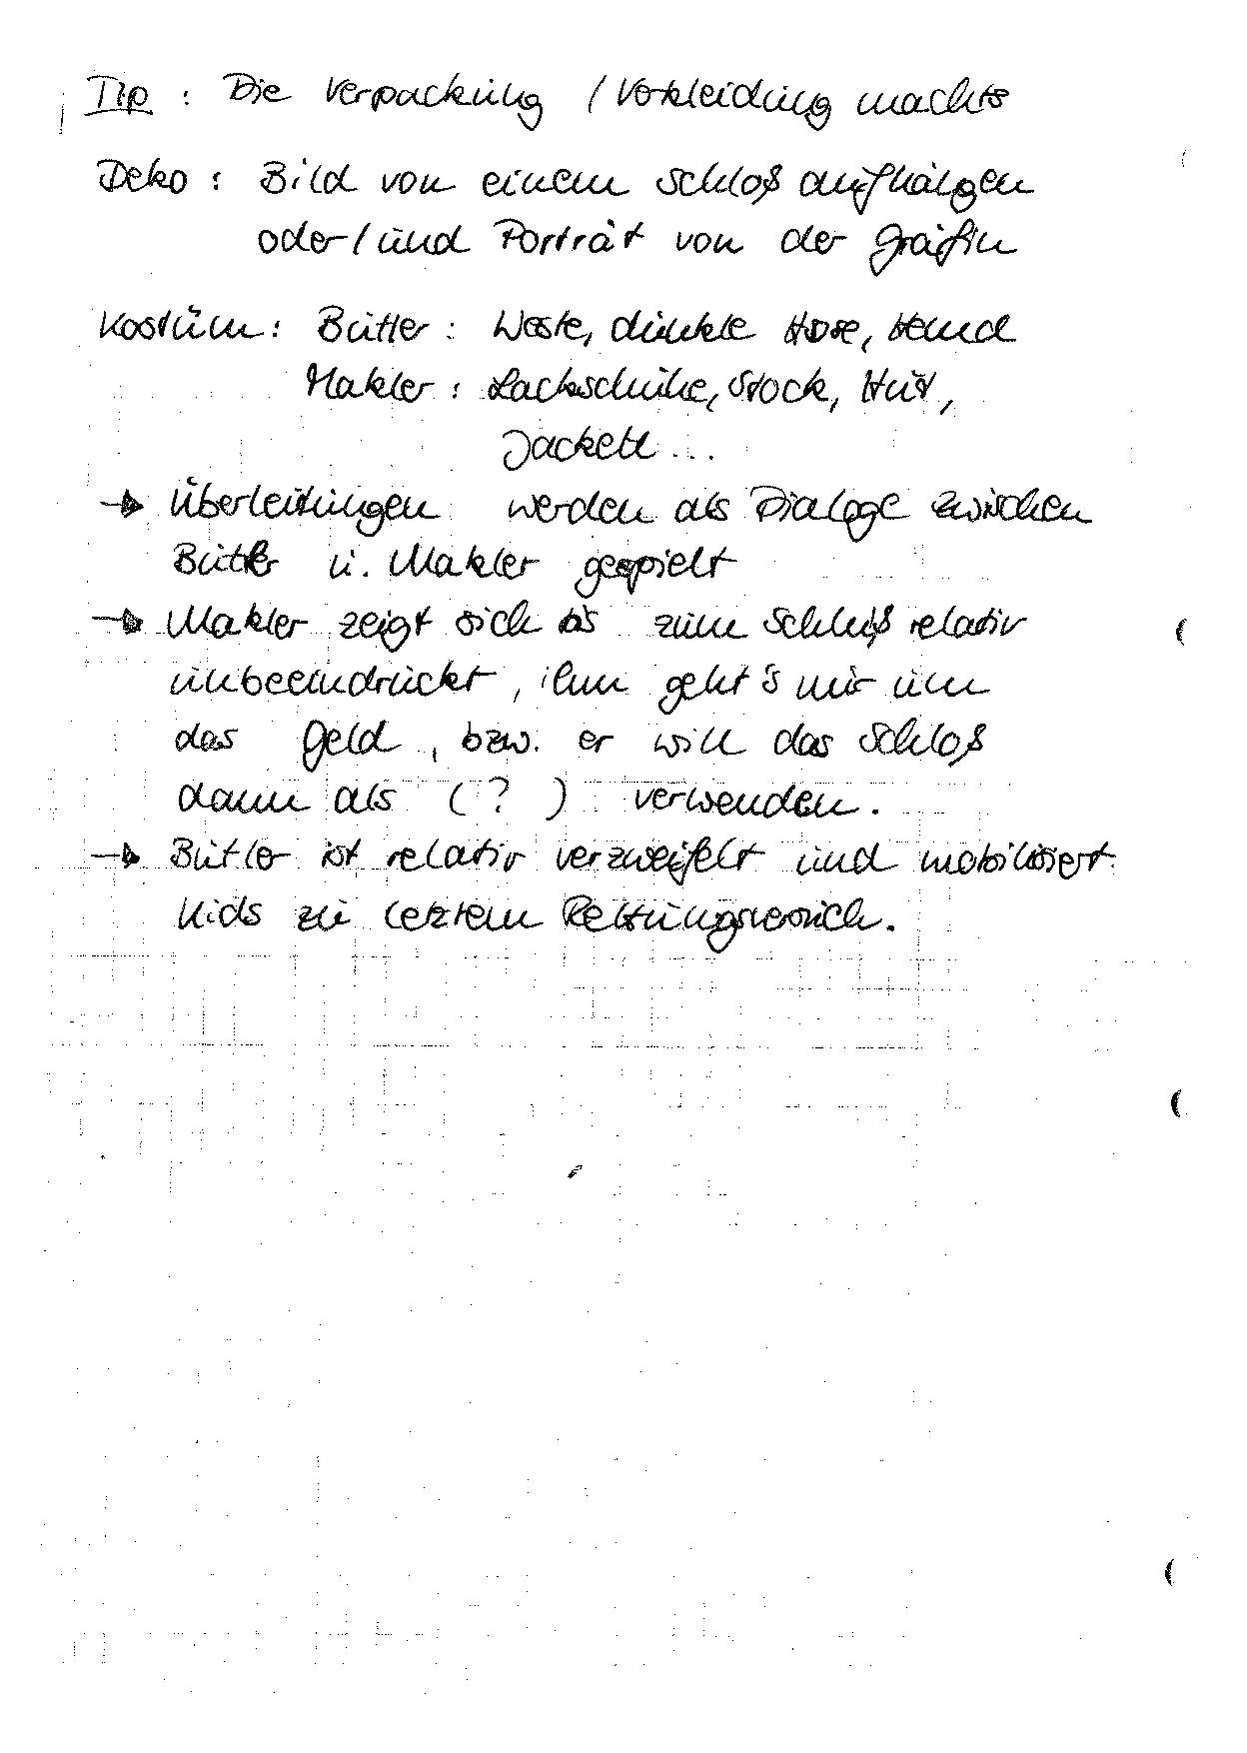 Tip : Die Verpackung / Verkleidung machts
Deko : Bild von einem Schloß aufhängen
oder / und Porträt von der Gräfin
Kostüm : Butler : Weste, dunkle Hose, Hemd
Makler : Lackschuhe, Stock, Hut,
Jackett ...
→ Überleitungen werden als Dialoge zwischen
Butler u. Makler gespielt
→ Makler zeigt sich bis zum Schluß relativ
unbeeindruckt, ihm geht's nur um
das Geld, bzw. er will das Schloß
dann als ( ? ) verwenden.
→ Butler ist relativ verzweifelt und mobilisiert
Kids zu letztem Rettungsversuch.